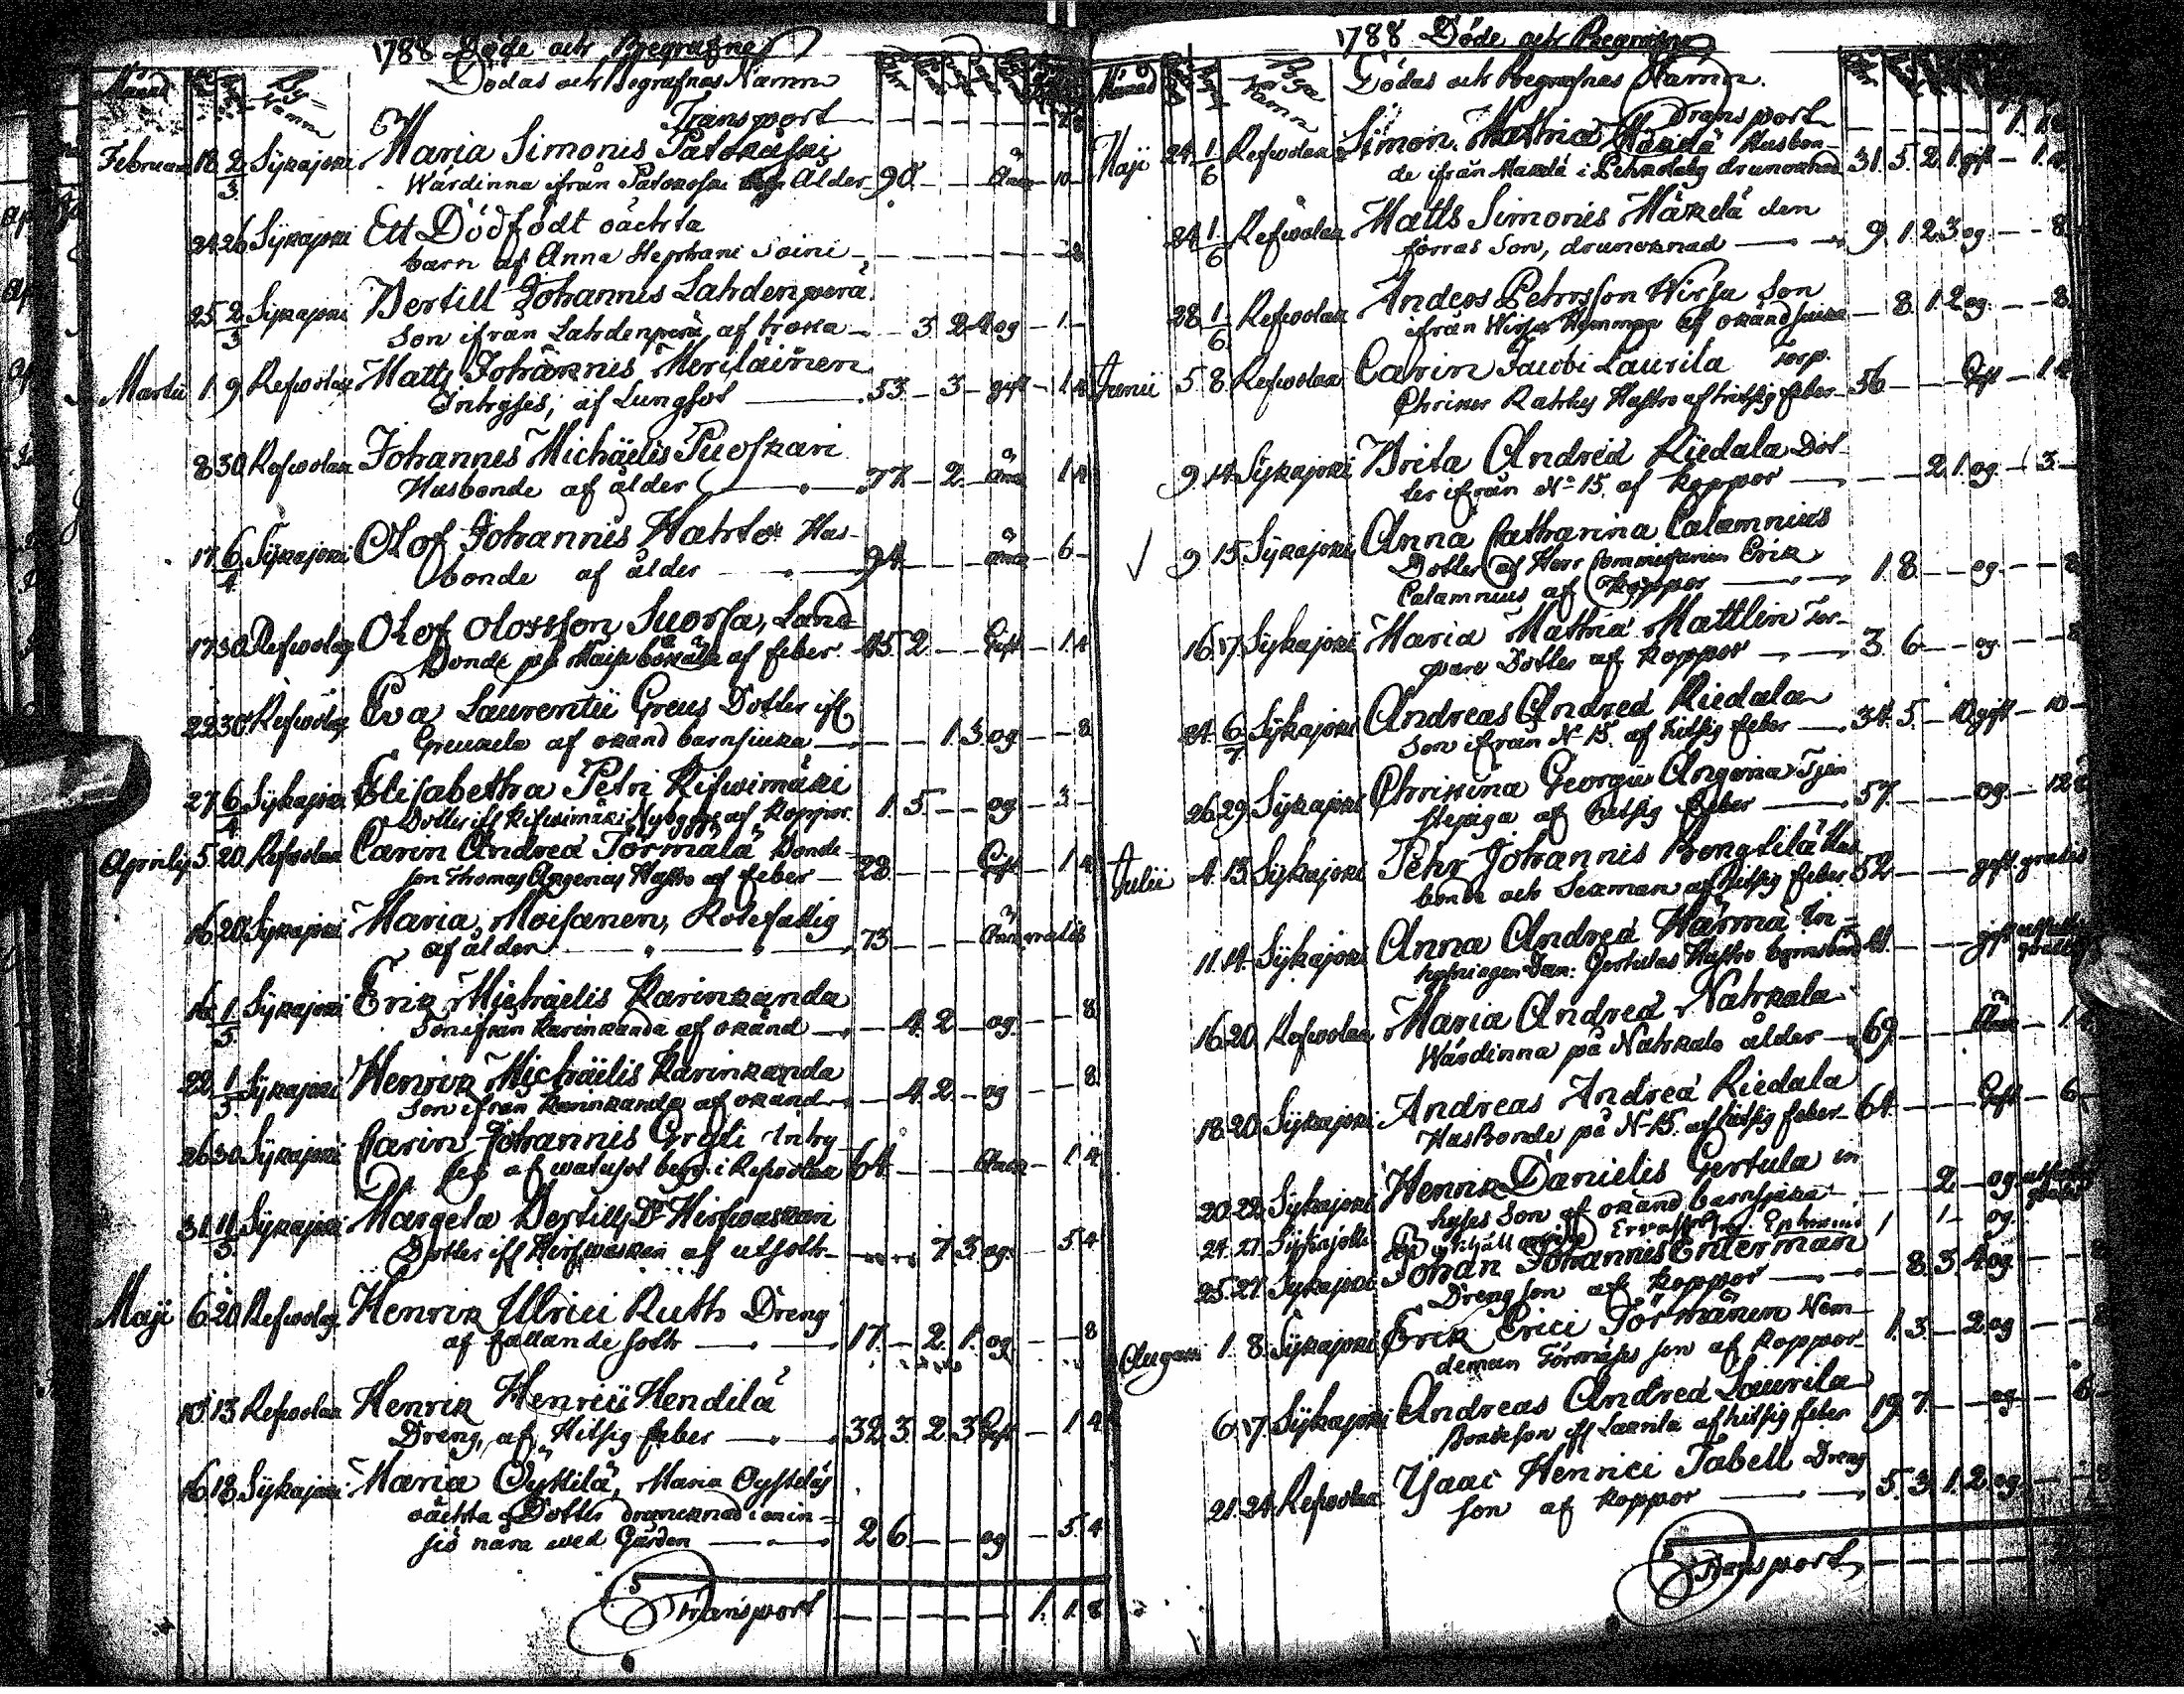 1788 Döde och Begrafne
Månad By-Namn Dödas och Begrafnas Namn
Transport
Februari 18 2/3 Sijkajoki Maria Simonis
Wärdinna ifrån Ålder 90 Änka 10
24 26 Sijkajoki Ett Dödfödt oächta
barn af Anna Stephani Soini
25 2/3 Sijkajoki Bertill Johannis Lahdenperä
Son ifrån Lahdenperä, af 3 2 4 og 1
Martii 1 9 Refwolax Matts Johannis Meriläinen
Inhyses, af Lungsot 53 3 gift 1 4
8 30 Refwolax Johannes Michäelis Puoskari
Husbonde af ålder 77 2 Änk 1 4
17 6/4 Sijkajoki Olof Johannis Hahto Hus-
bonde af ålder 94 änk 6
17 30 Refwolax Olof Olofsson Suorsa, Land-
bonde på af feber 45 2 Gift 1 4
22 30 Refwolax Eva Laurentii Greus Dotter if
Greusela af okänd barnsiuka 1 3 og 8
27 6/4 Sijkajoki Elisabetha Petri Kifwimäki
Dotter if Kifwimäki Nybygge af koppor 1 5 og 3
Aprilis 5 20 Refwolax Carin Andreä Törmälä Bonde-
son Thomas Angerias Hustro af feber 28 Gift 1 4
16 20 Sijkajoki Maria Moisanen, Rotefattig
af ålder 73 Änk gratis
16 1/5 Sijkajoki Erik Michäelis Karinkanda
Son ifrån Karinkanda af okänd 4 2 og 8
22 1/5 Sijkajoki Henrik Michäelis Karinkanda
Son ifrån Karinkanda af okänd 4 2 og 8
26 30 Sijkajoki Carin Johannis Inhy-
ses af watusot begr. i Refwolax 64 Änka 1 4
31 11/5 Sijkajoki Margeta Bertills Dr Hirfwaskari
Dotter if Hirfwaskari af utsoth 7 3 og 5 4
Maji 6 20 Refwolax Henrik Ulrici Ruth Dreng
af fallande soth 17 2 1 og 8
10 13 Refwolax Henrik Henrici Hendilä
Dreng, af Hitsig feber 32 3 2 3 Gift 1 4
16 18 Sijkajoki Maria Öystilä, Maria Öystiläs
oächta Dotter drunknad i en in-
siö nära wed Gården 2 6 og 5 4
Transport 1 1 8
1788 Döde och Begrafne
Månad Byn Namn Dödas och Begrafnas Namn.
Transport 1
Maji 24 1/6 Refwolax Simon Mathiä Mäkelä Husbon-
de ifrån Makelä i Pehkolaby drunknad 31 5 2 1 gift 1 4
24 1/6 Refwolax Matts Simonis Mäkelä den
förras Son, drunknad 9 1 2 3 og 8
28 1/6 Refwolax Anders Petersson Wirsu Son
ifrån Wirsu Hemman af okänd siuka 8 1 2 og 8
Junii 5 8 Refwolax Carin Jacobi Laurila Torp.
Hustro af hitsig feber 56 Gift 1 4
9 14 Sijkajoki Brita Andreä Riedala Dot-
ter ifrån No 15 af koppor 2 1 og 3
9 15 Sijkajoki Anna Catharina Calamnius
Dotter af Herr Commissarien Erik
Calamnius af koppor 1 8 og 8
16 17 Sijkajoki Maria Mathiä Mattlin Tor-
pare Dotter af koppor 3 6 og 8
24 6/7 Sijkajoki Andreas Andreä Riedala
Son ifrån No 15 af hitsig feber 34 5 10 gift 10
26 29 Sijkajoki Christina Georgii Angeria Tjen
stepiga af hitsig feber 57 og 12
Julii 4 13 Sijkajoki Pehr Johannis Bengtilä Hus
bonde och Seaman af hitsig feber 52 gift gratis
11 14 Sijkajoki Anna Andreä Härmä In-
hysingen Dan: Gertulas Hustro barnsbörd gift gratis
16 20 Refwolax Maria Andreä Nahkala
Wärdinna på Nahkala ålder 69 Änk 1 4
18 20 Sijkajoki Andreas Andreä Riedala
Husbonde på No 15 af hitsig feber 61 Gift 6
20 22 Sijkajoki Henrik Danielis Gertula in
hyses Son af okänd barnsjuka 2 og gratis
24 27 Sijkajoki 1 1 og.
25 27 Sijkajoki Johan Johannis Enterman
Dreng son af koppor 8 3 4 og
Augusti 1 8 Sijkajoki Erik Erici Törmänen Nem-
deman Törmäses son af koppor 1 3 2 og 8
6 17 Sijkajoki Andreas Andreä Laurila
Bondeson if Laurila af hitsig feber 19 7 og 6
21 24 Refwolax Ysaac Henrici Tabell Dreng
son af koppor 5 3 1 2 og 8
Transport